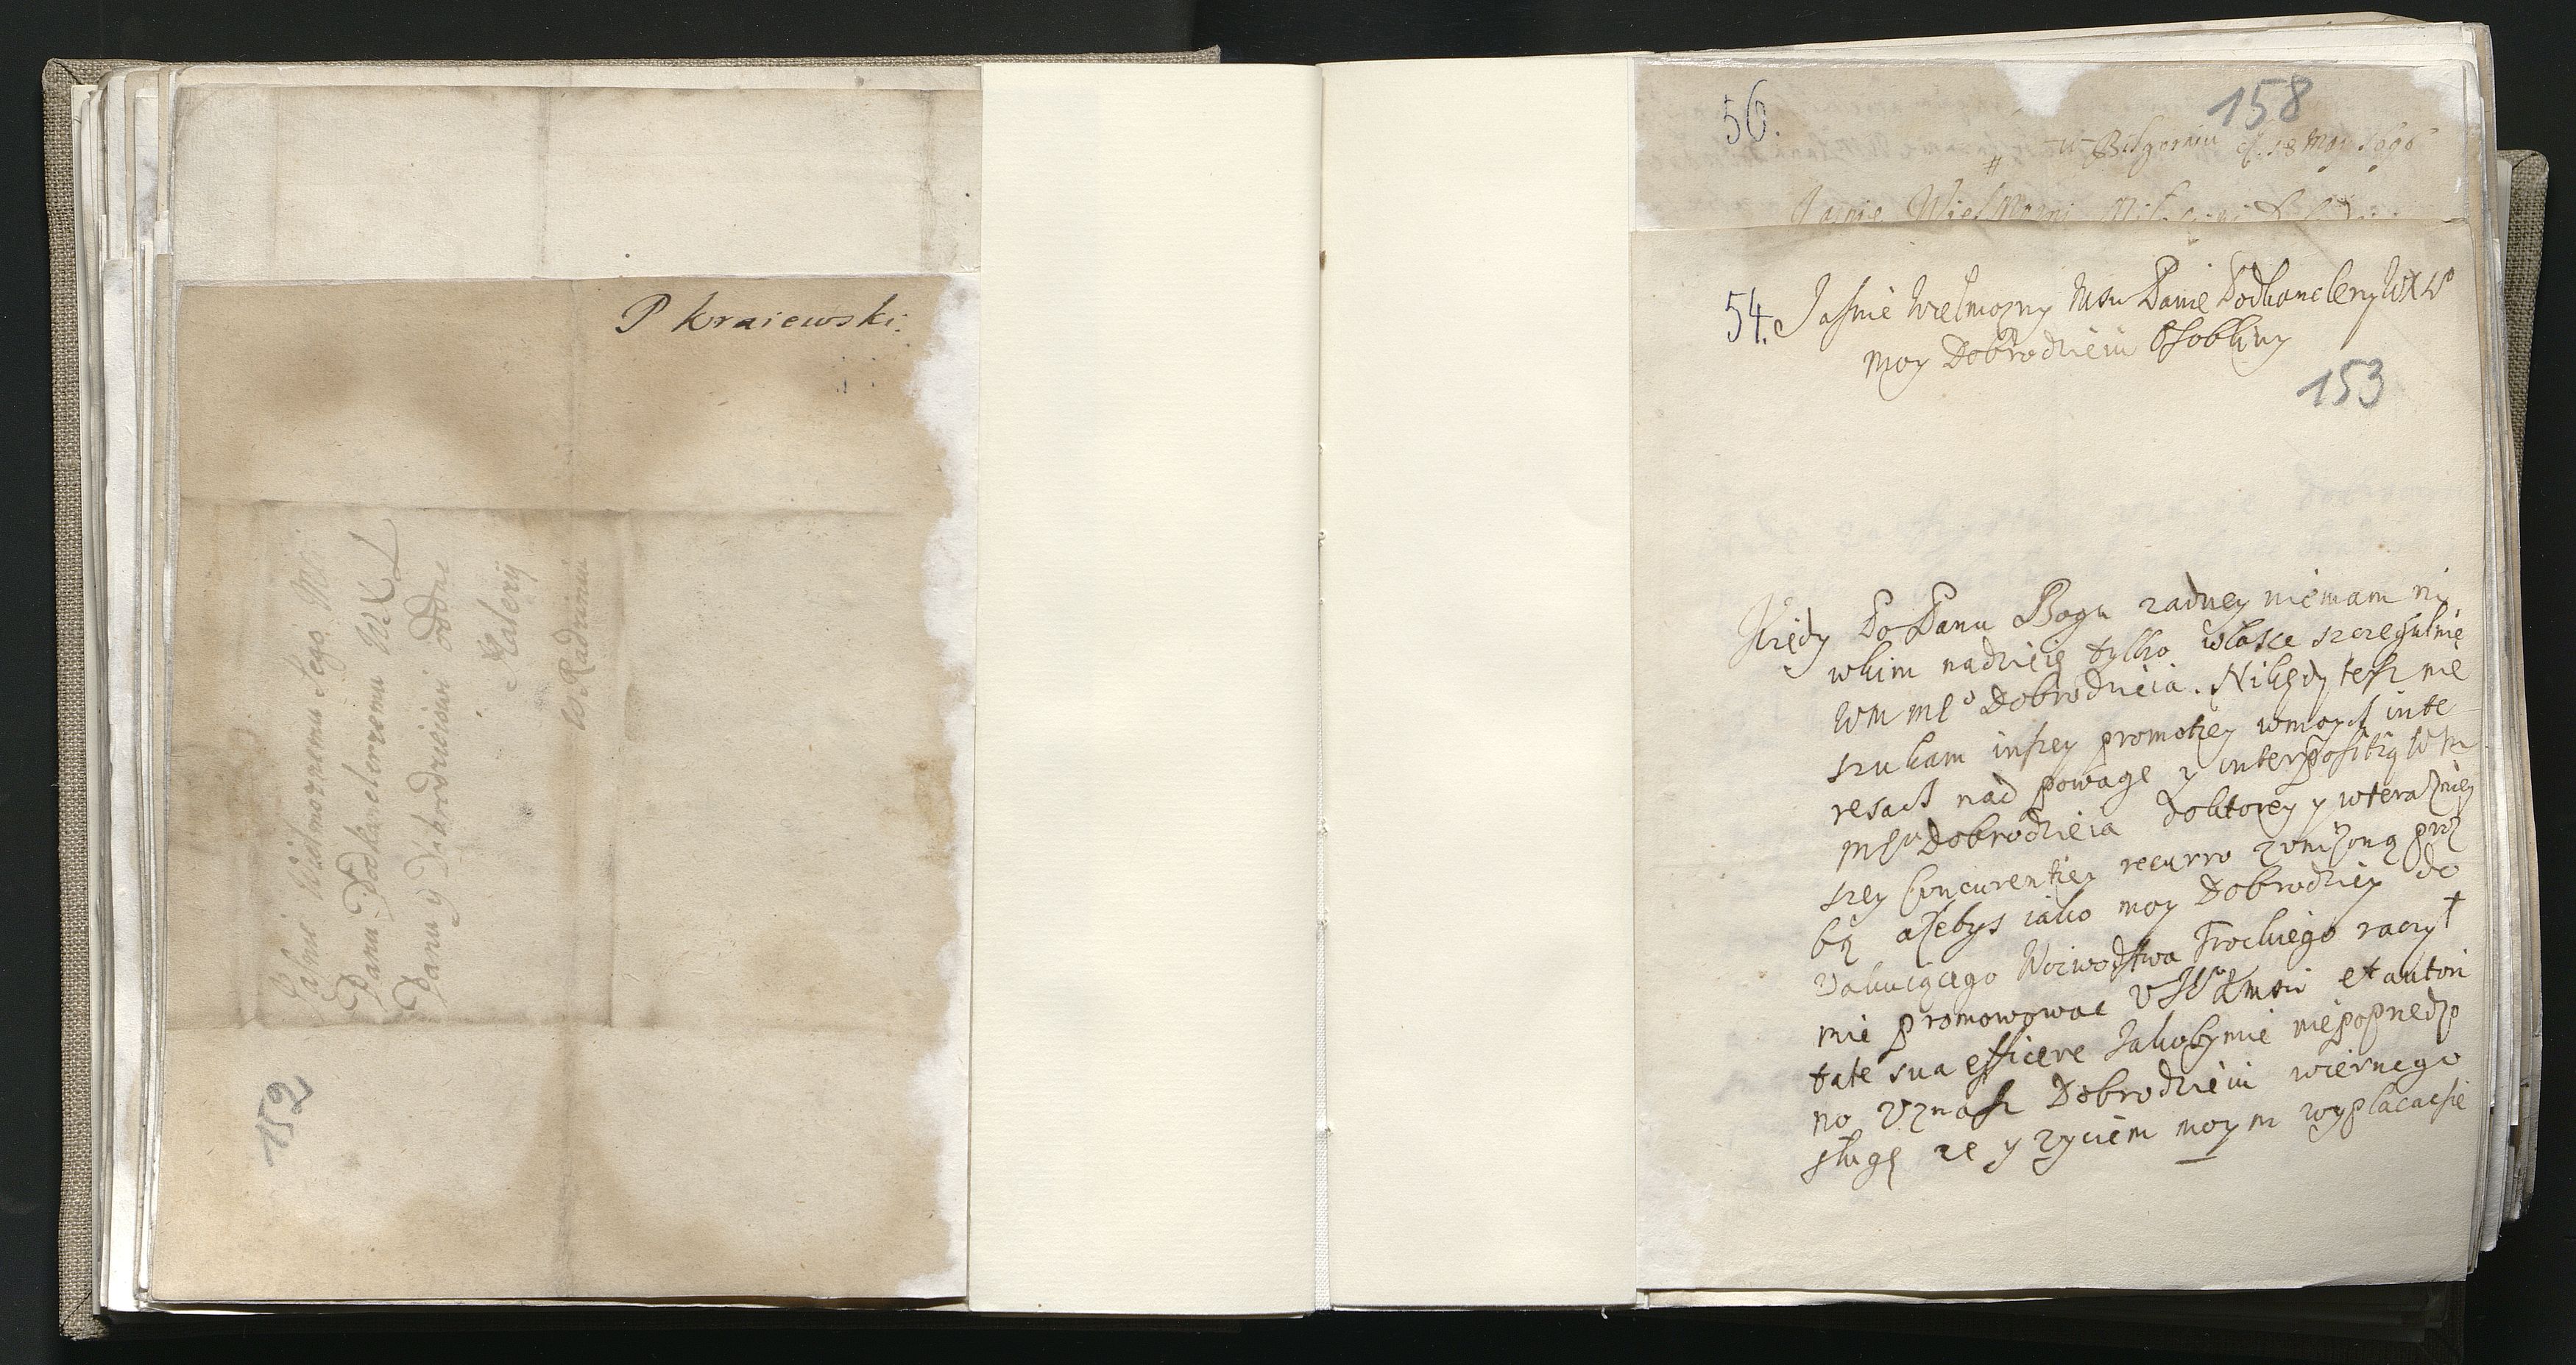 P Kraiewski.
Jasnie Wielmoznemu Jego Mci
Panu Podkanclerzemu W X L
Panu y Dobrodzieiowi oddac
Nalezy
W Radzimin
152
50.
158
w Bilgoraiu d. 18 May 1696
#
Jasnie Wielmozni
54.
Jasnie Wielmozny Msu Panie Podkanclerzy WXL
moy Dobrodzieiu Osobliwy
153
Kiedy Po Panu Bogu zadney niemam ni
wkim nadzieię tylko własce szczegulnię
WM Mgo Dobrodzieia. Nikędy tesz nie
szukam inszey promotiey wmoych inte
resach nad powagę y interpositią WM
Mgo Dobrodzieia do ktorey y wterazniey
szey concurentiey recurro zunizoną proz
bą azebys iako moy Dobrodziey do
vakuiącego Woiwodztwa Trockiego raczył
mie promowowac et autori
tate sua efficere
no uznasz Dobrodzieiu wiernego
sługę ze y zyciem moym wypłacacsie